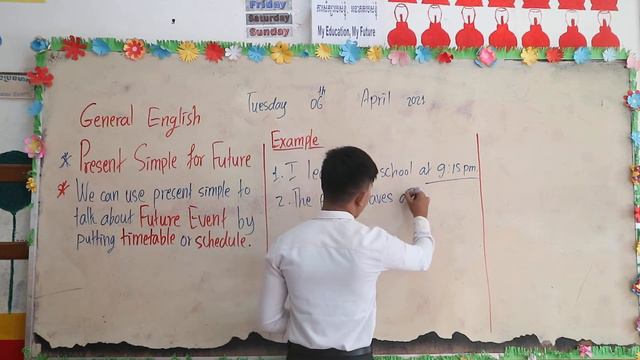 Friday
Saturday
Sunday
My Education, My Future
Tuesday 06th April 2021
General English
* Present Simple for Future
* We can use present simple to
talk about Future Event by
putting timetable or schedule.
Example
1. I school at 9:15 pm.
2. The